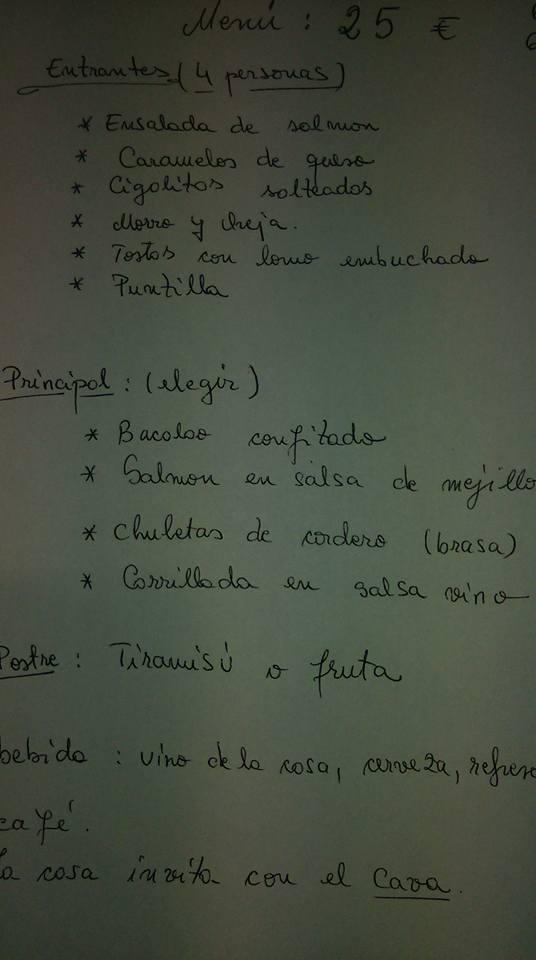 Menú : 25 €
Entrantes (4 personas)
* Ensalada de salmon
* Caramelos de queso
* Cigolitos solteados
* Morro y Oreja.
* Tostas con lomo embuchado
* Puntilla
Principal : (elegir)
* Bacalao confitado
* Salmon en salsa de mejillo
* Chuletas de cordero (brasa)
* Corrillada en salsa vino
Postre : Tiramisú o fruta
bebida : vino de la casa, cerveza, refres
café.
la casa invita con el Cava.